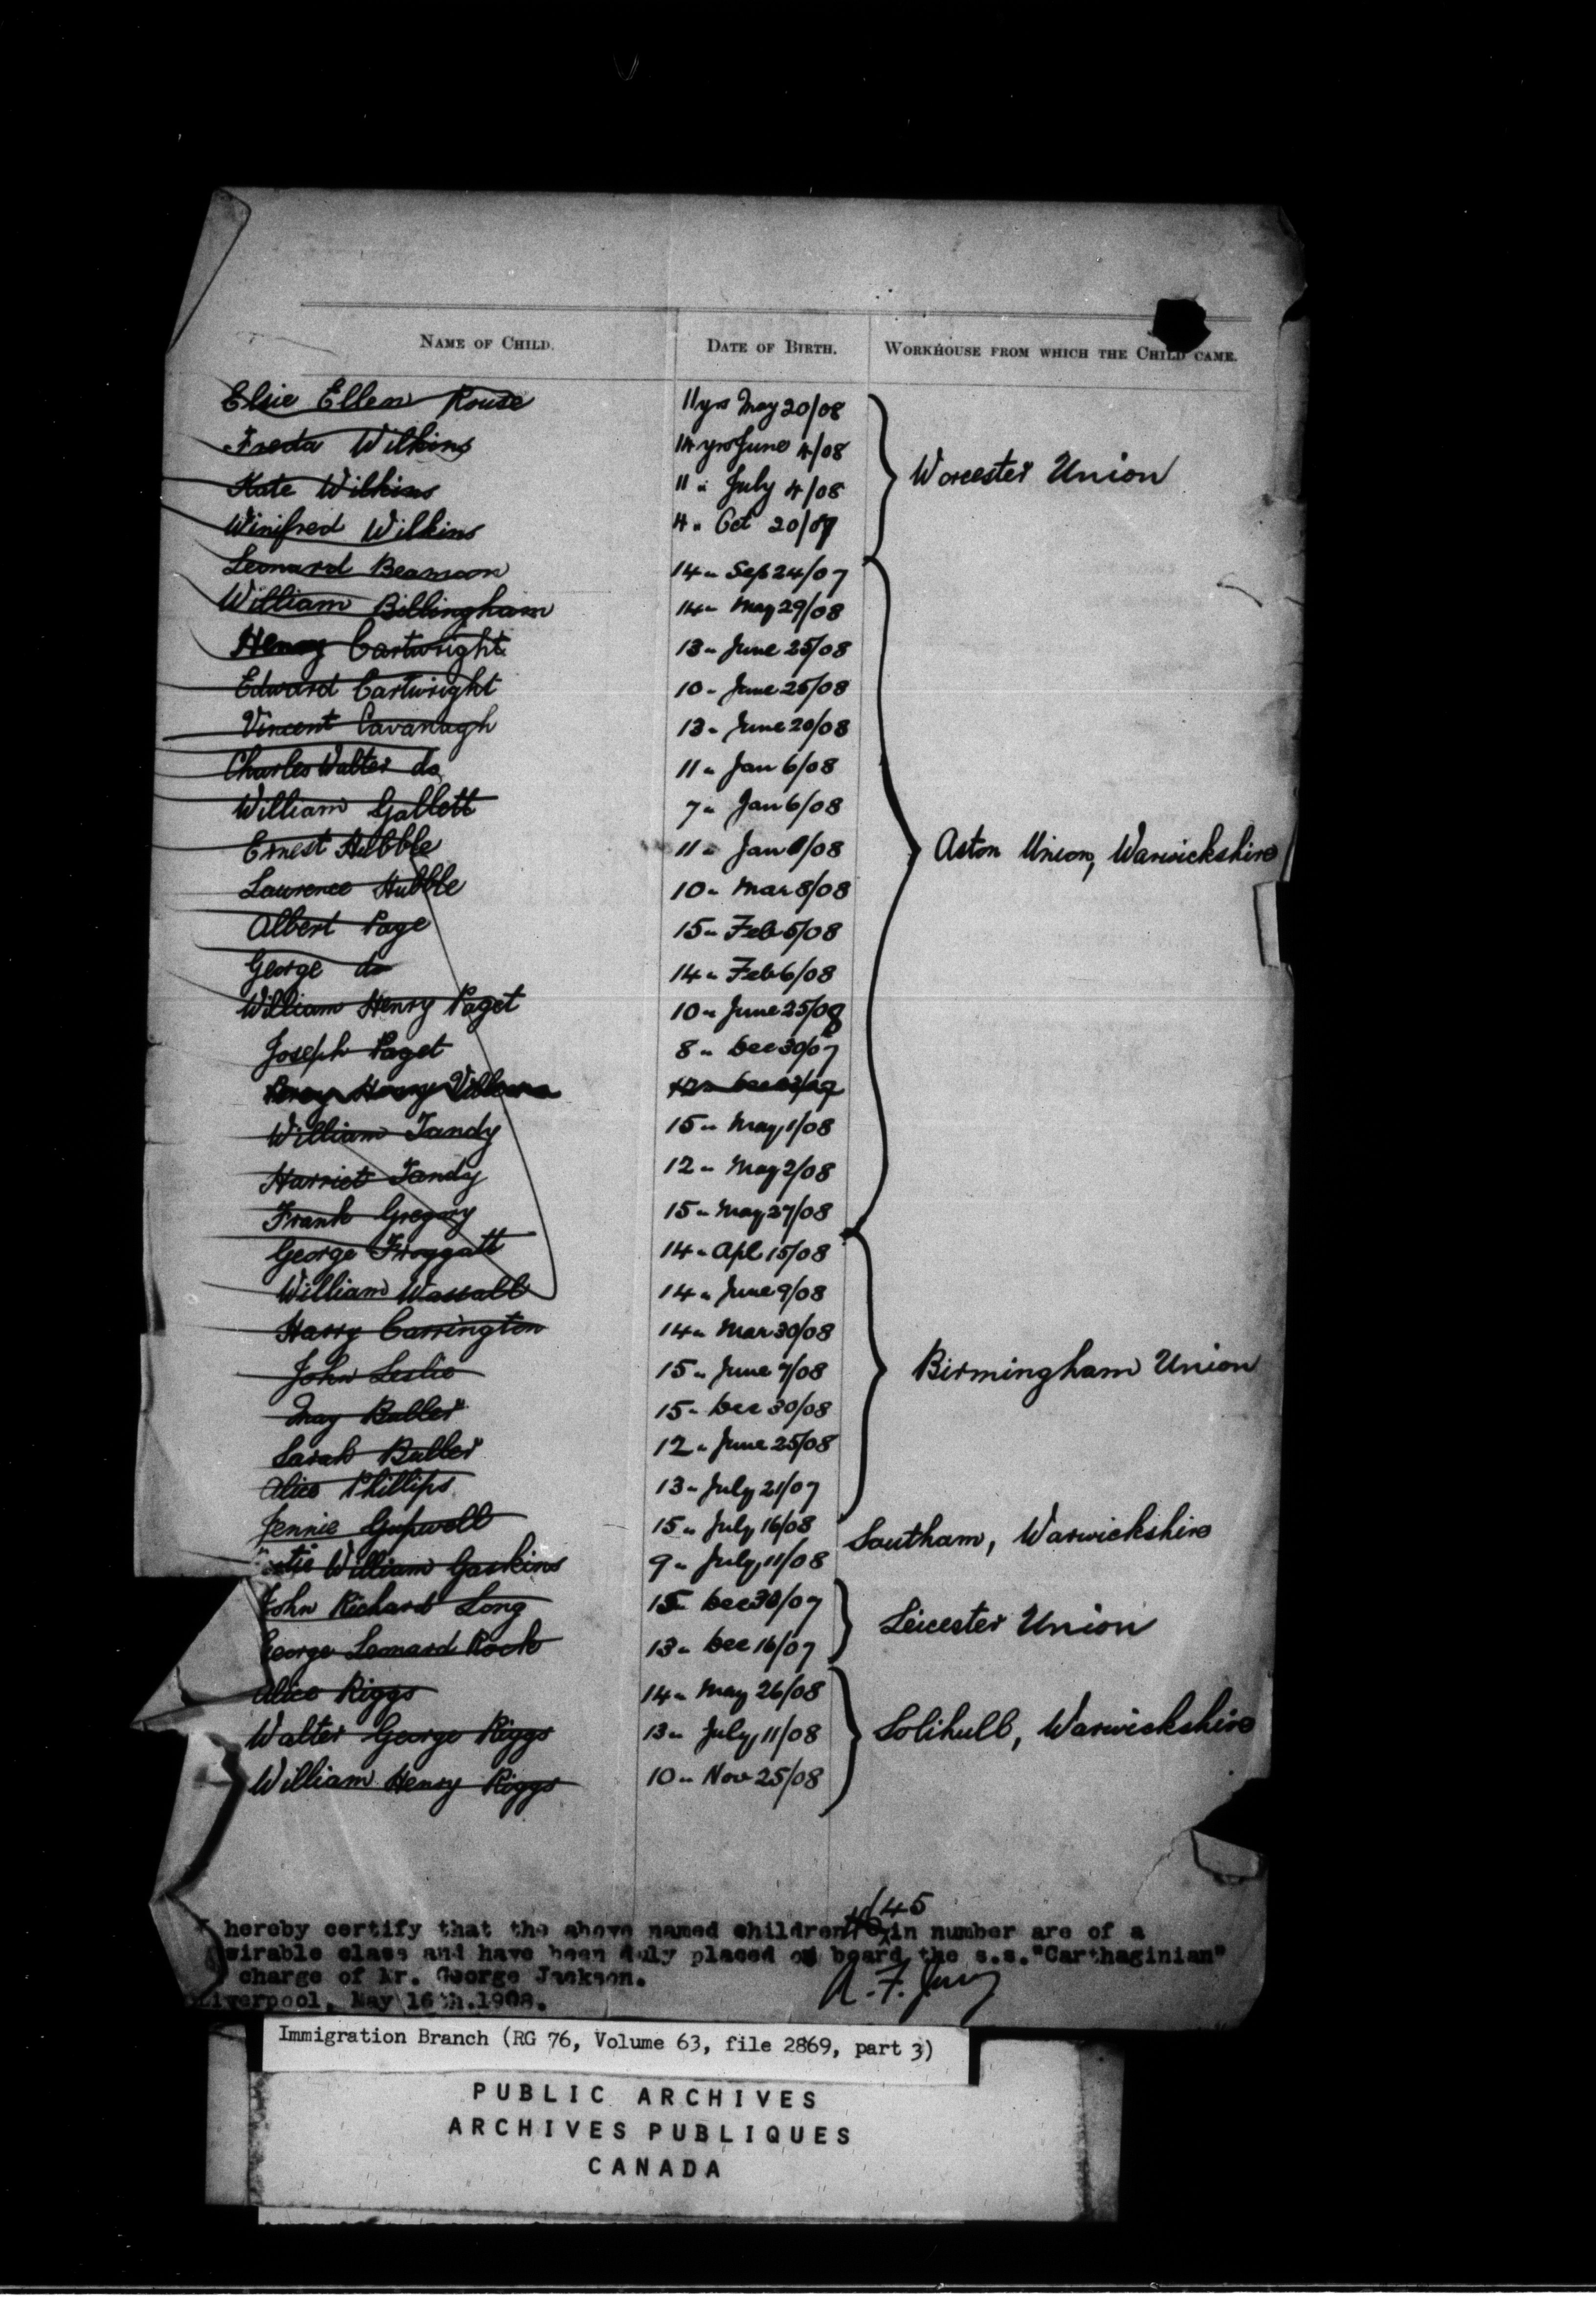 NAME OF CHILD. DATE OF BIRTH. WORKHOUSE FROM WHICH THE CHILD CAME.
Elsie Ellen Rouse 11 yrs May 20/08
Freda Wilkins 14 yrs June 4/08
Worcester Union
Kate Wilkins 11 " July 4/08
Winifred Wilkins 4 " Oct 20/07
Leonard Beamson 14 " Sep 24/07
William Billingham 14 " May 29/08
Henry Cartwright 13 " June 25/08
Edward Cartwright 10 " June 25/08
Vincent Cavanagh 13 " June 20/08
Charles Walter do 11 " Jan 6/08
William Gollett 7 " Jan 6/08
Ernest Hubble 11 " Jan /08
Aston Union, Warwickshire
Lawrence Hubble 10 " Mar 8/08
Albert Page 15 " Feb 5/08
George do 14 " Feb 6/08
William Henry Paget 10 " June 25/08
Joseph Paget 8 " Dec 30/07
Percy Henry 12 " Dec
William Tandy 15 " May 1/08
Harriet Tandy 12 " May 2/08
Frank Gregory 15 " May 27/08
George Froggatt 14 " Apl 15/08
William Wassall 14 " June 9/08
Harry Carrington 14 " Mar 30/08
John Leslie 15 " June 7/08
Birmingham Union
May Buller 15 " Dec 30/08
Sarah Buller 12 " June 25/08
Alice Phillips 13 " July 21/07
Jennie Gupwell 15 " July 16/08 Southam, Warwickshire
William Gaskins 9 " July 11/08
John Richard Long 15 Dec 30/07
Leicester Union
George Leonard Rock 13 " Dec 16/07
Alice Riggs 14 " May 26/08
Walter George Riggs 13 " July 11/08 Solihull, Warwickshire
William Henry Riggs 10 " Nov 25/08
45
I hereby certify that the above named children in number are of a
sirable class and have been duly placed on board the s.s."Carthaginian"
charge of Mr. George Jackson.
Liverpool, May 16th.1908.
Immigration Branch (RG 76, Volume 63, file 2869, part 3)
PUBLIC ARCHIVES
ARCHIVES PUBLIQUES
CANADA